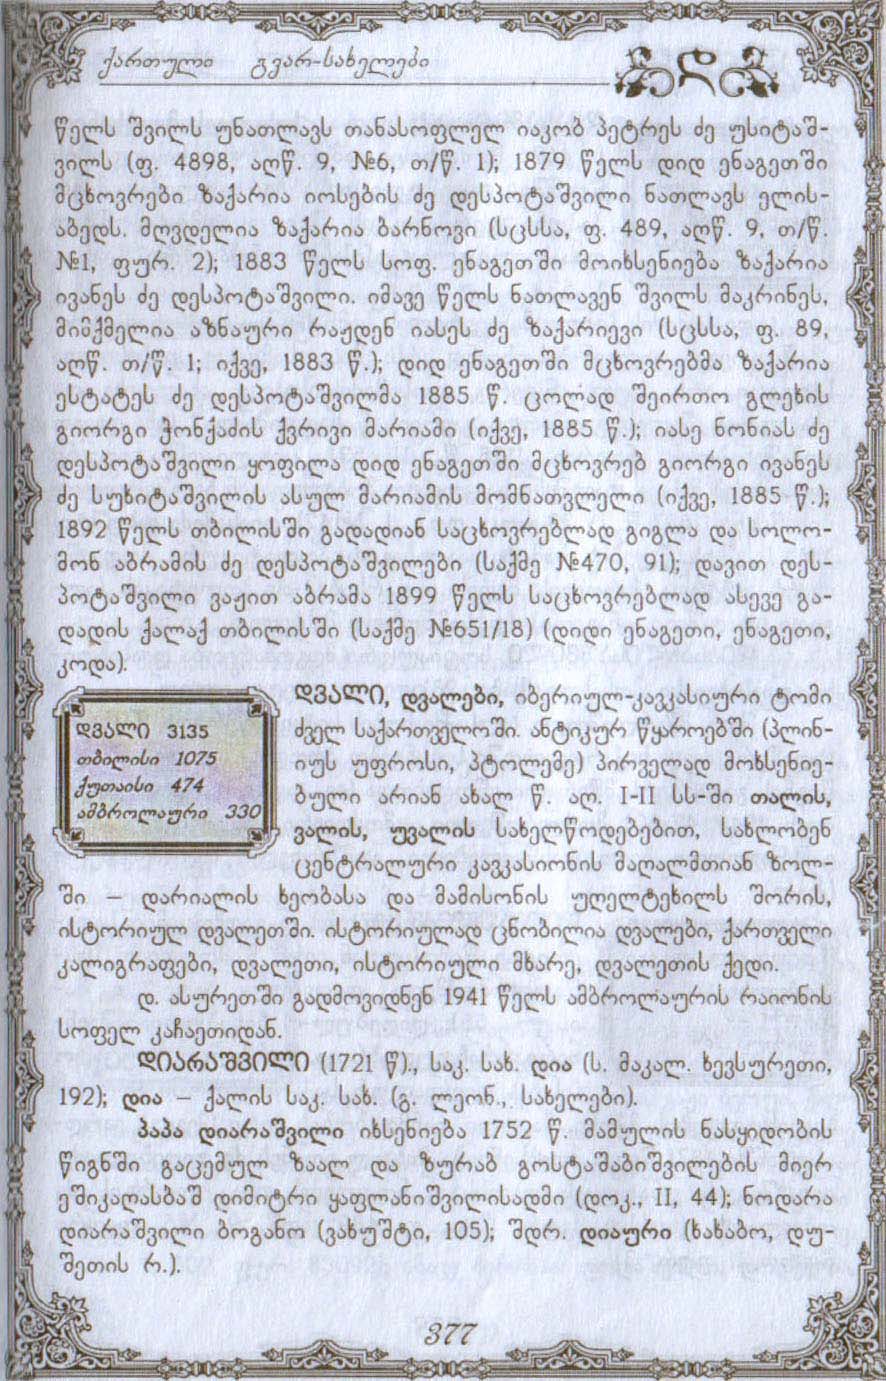 ქართული გვარ-სახელები
დ
წელს შვილს უნათლავს თანასოფლელ იაკობ პეტრეს ძე უსიტაშ-
ვილს (ფ. 4898, აღწ. 9, №6, თ/წ. 1); 1879 წელს დიდ ენაგეთში
მცხოვრები ზაქარია იოსების ძე დესპოტაშვილი ნათლავს ელის-
აბედს. მღვდელია ზაქარია ბარნოვი (სცსსა, ფ. 489, აღწ. 9, თ/წ.
№1, ფურ. 2); 1883 წელს სოფ. ენაგეთში მოიხსენიება ზაქარია
ივანეს ძე დესპოტაშვილი. იმავე წელს ნათლავენ შვილს მაკრინეს,
მიმქმელია აზნაური რაჟდენ იასეს ძე ზაქარიევი (სცსსა, ფ. 89,
აღწ. თ/წ. 1; იქვე, 1883 წ.); დიდ ენაგეთში მცხოვრებმა ზაქარია
ესტატეს ძე დესპოტაშვილმა 1885 წ. ცოლად შეირთო გლეხის
გიორგი ჭონქაძის ქვრივი მარიამი (იქვე, 1885 წ.); იასე ნონიას ძე
დესპოტაშვილი ყოფილა დიდ ენაგეთში მცხოვრებ გიორგი ივანეს
ძე სუხიტაშვილის ასულ მარიამის მომნათვლელი (იქვე, 1885 წ.);
1892 წელს თბილისში გადადიან საცხოვრებლად გიგლა და სოლო-
მონ აბრამის ძე დესპოტაშვილები (საქმე №470, 91); დავით დეს-
პოტაშვილი ვაჟით აბრამა 1899 წელს საცხოვრებლად ასევე გა-
დადის ქალაქ თბილისში (საქმე №651/18) (დიდი ენაგეთი, ენაგეთი,
კოდა).
დვალი 3135
თბილისი 1075
ქუთაისი 474
ამბროლაური 330
დვალი, დვალები, იბერიულ-კავკასიური ტომი
ძველ საქართველოში. ანტიკურ წყაროებში (პლინ-
იუს უფროსი, პტოლემე) პირველად მოხსენიე-
ბული არიან ახალ წ. აღ. I-II სს-ში თალის,
ვალის, უვალის სახელწოდებებით, სახლობენ
ცენტრალური კავკასიონის მაღალმთიან ზოლ-
ში – დარიალის ხეობასა და მამისონის უღელტეხილს შორის,
ისტორიულ დვალეთში. ისტორიულად ცნობილია დვალები, ქართველი
კალიგრაფები, დვალეთი, ისტორიული მხარე, დვალეთის ქედი.
დ. ასურეთში გადმოვიდნენ 1941 წელს ამბროლაურის რაიონის
სოფელ კაჩაეთიდან.
დიარაშვილი (1721 წ)., საკ. სახ. დია (ს. მაკალ. ხევსურეთი,
192); დია – ქალის საკ. სახ. (გ. ლეონ., სახელები).
პაპა დიარაშვილი იხსენიება 1752 წ. მამულის ნასყიდობის
წიგნში გაცემულ ზაალ და ზურაბ გოსტაშაბიშვილების მიერ
ეშიკაღასბაშ დიმიტრი ყაფლანიშვილისადმი (დოკ., II, 44); ნოდარა
დიარაშვილი ბოგანო (ვახუშტი, 105); შდრ. დიაური (ხახაბო, დუ-
შეთის რ.).
377